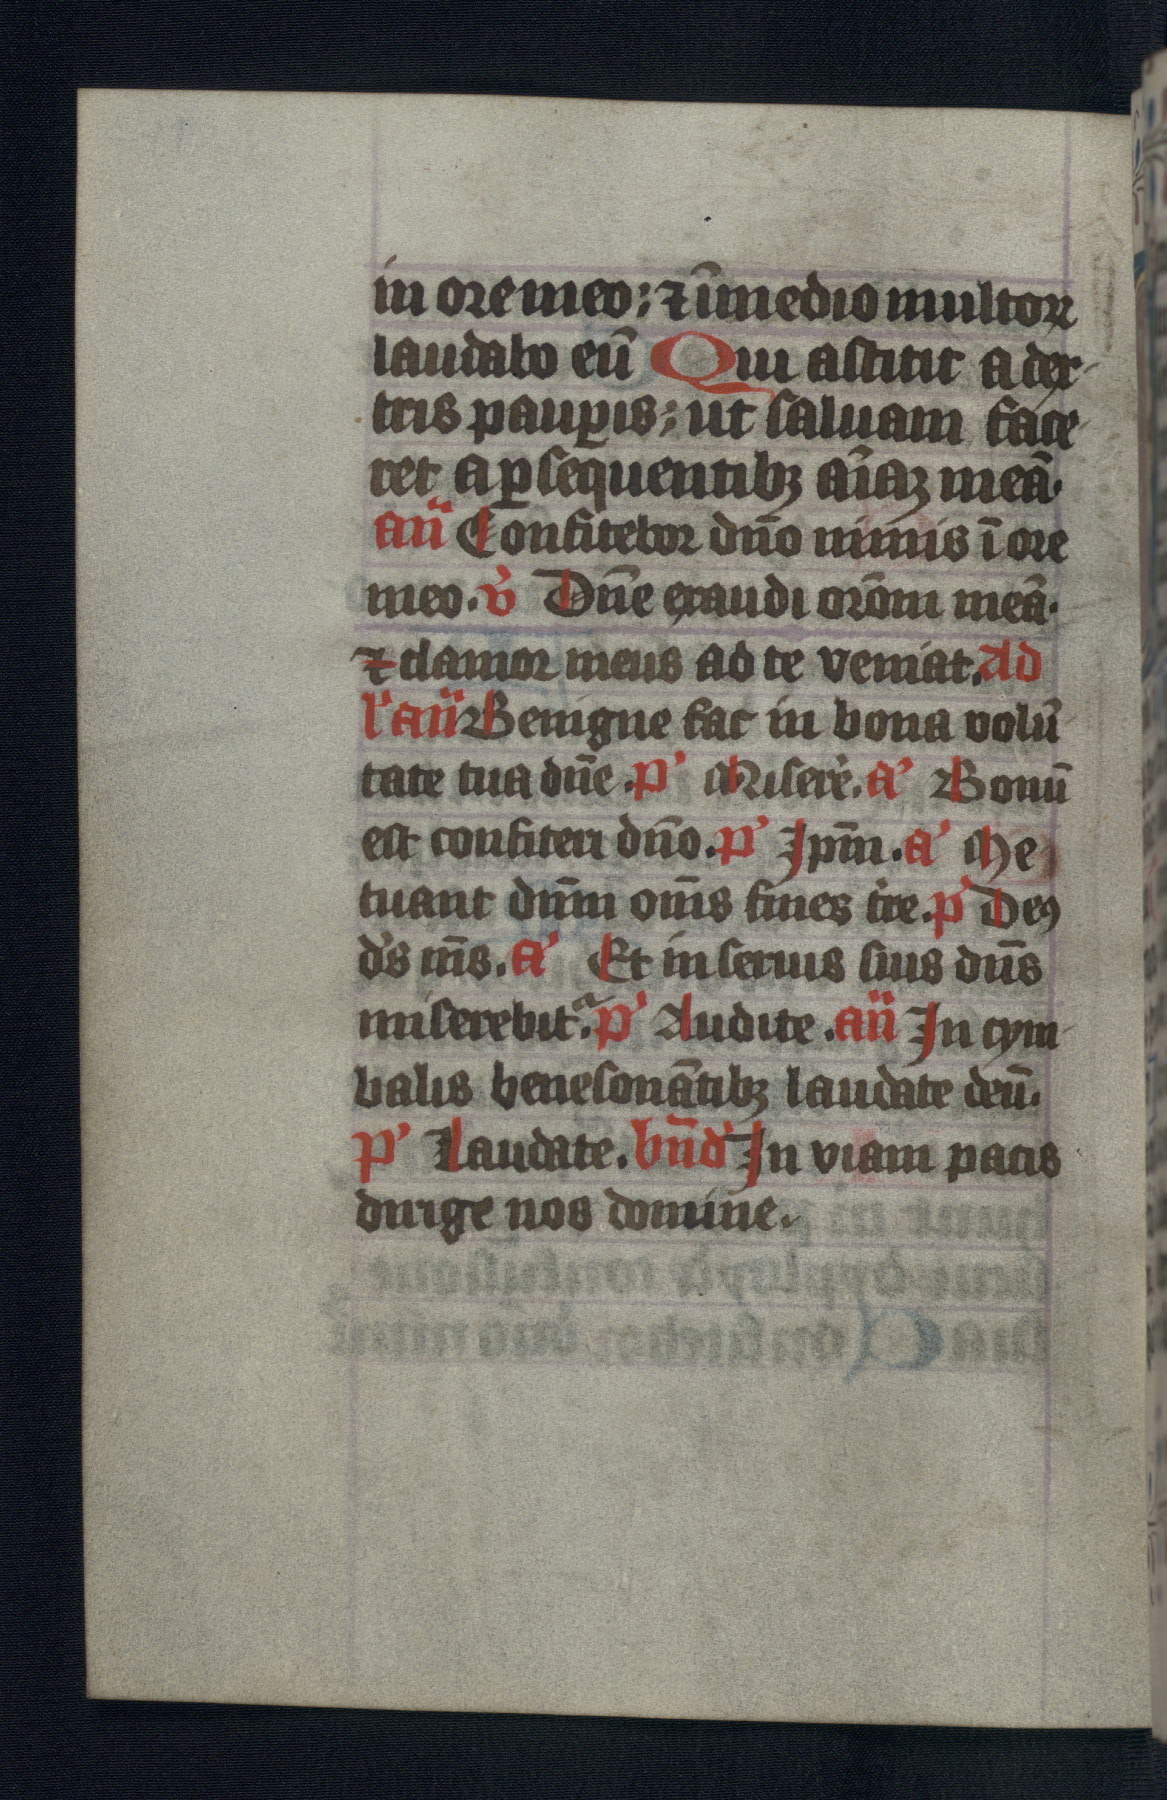 in ore meo; ⁊ ī medio multoꝝ
laudabo eū Qui astitit a dex-
tris pauꝑis; ut saluam face-
ret a ꝑsequentibꝫ aīaꝫ meā.
an̄ Confitebor dn̄o nimis ī ore
meo. v̄ Dn̄e exaudi orōm meā.
⁊ clamor meus ad te veniat. Ad
l' an̄ Benigne fac in bona volū
tate tua dn̄e. p' Misere'. a' Bonū
est confiteri dn̄o. p' Ip̄m. a' Me
tuant dn̄m om̄s fines t're. p' Deꝰ
d's m̄s. a' Et in seruis suis dn̄s
miserebit᷑. p' Audite. an̄ In cym-
balis benesonātibꝫ laudate deū.
p' Laudate. bn̄d' In viam pacis
dirige nos domine.